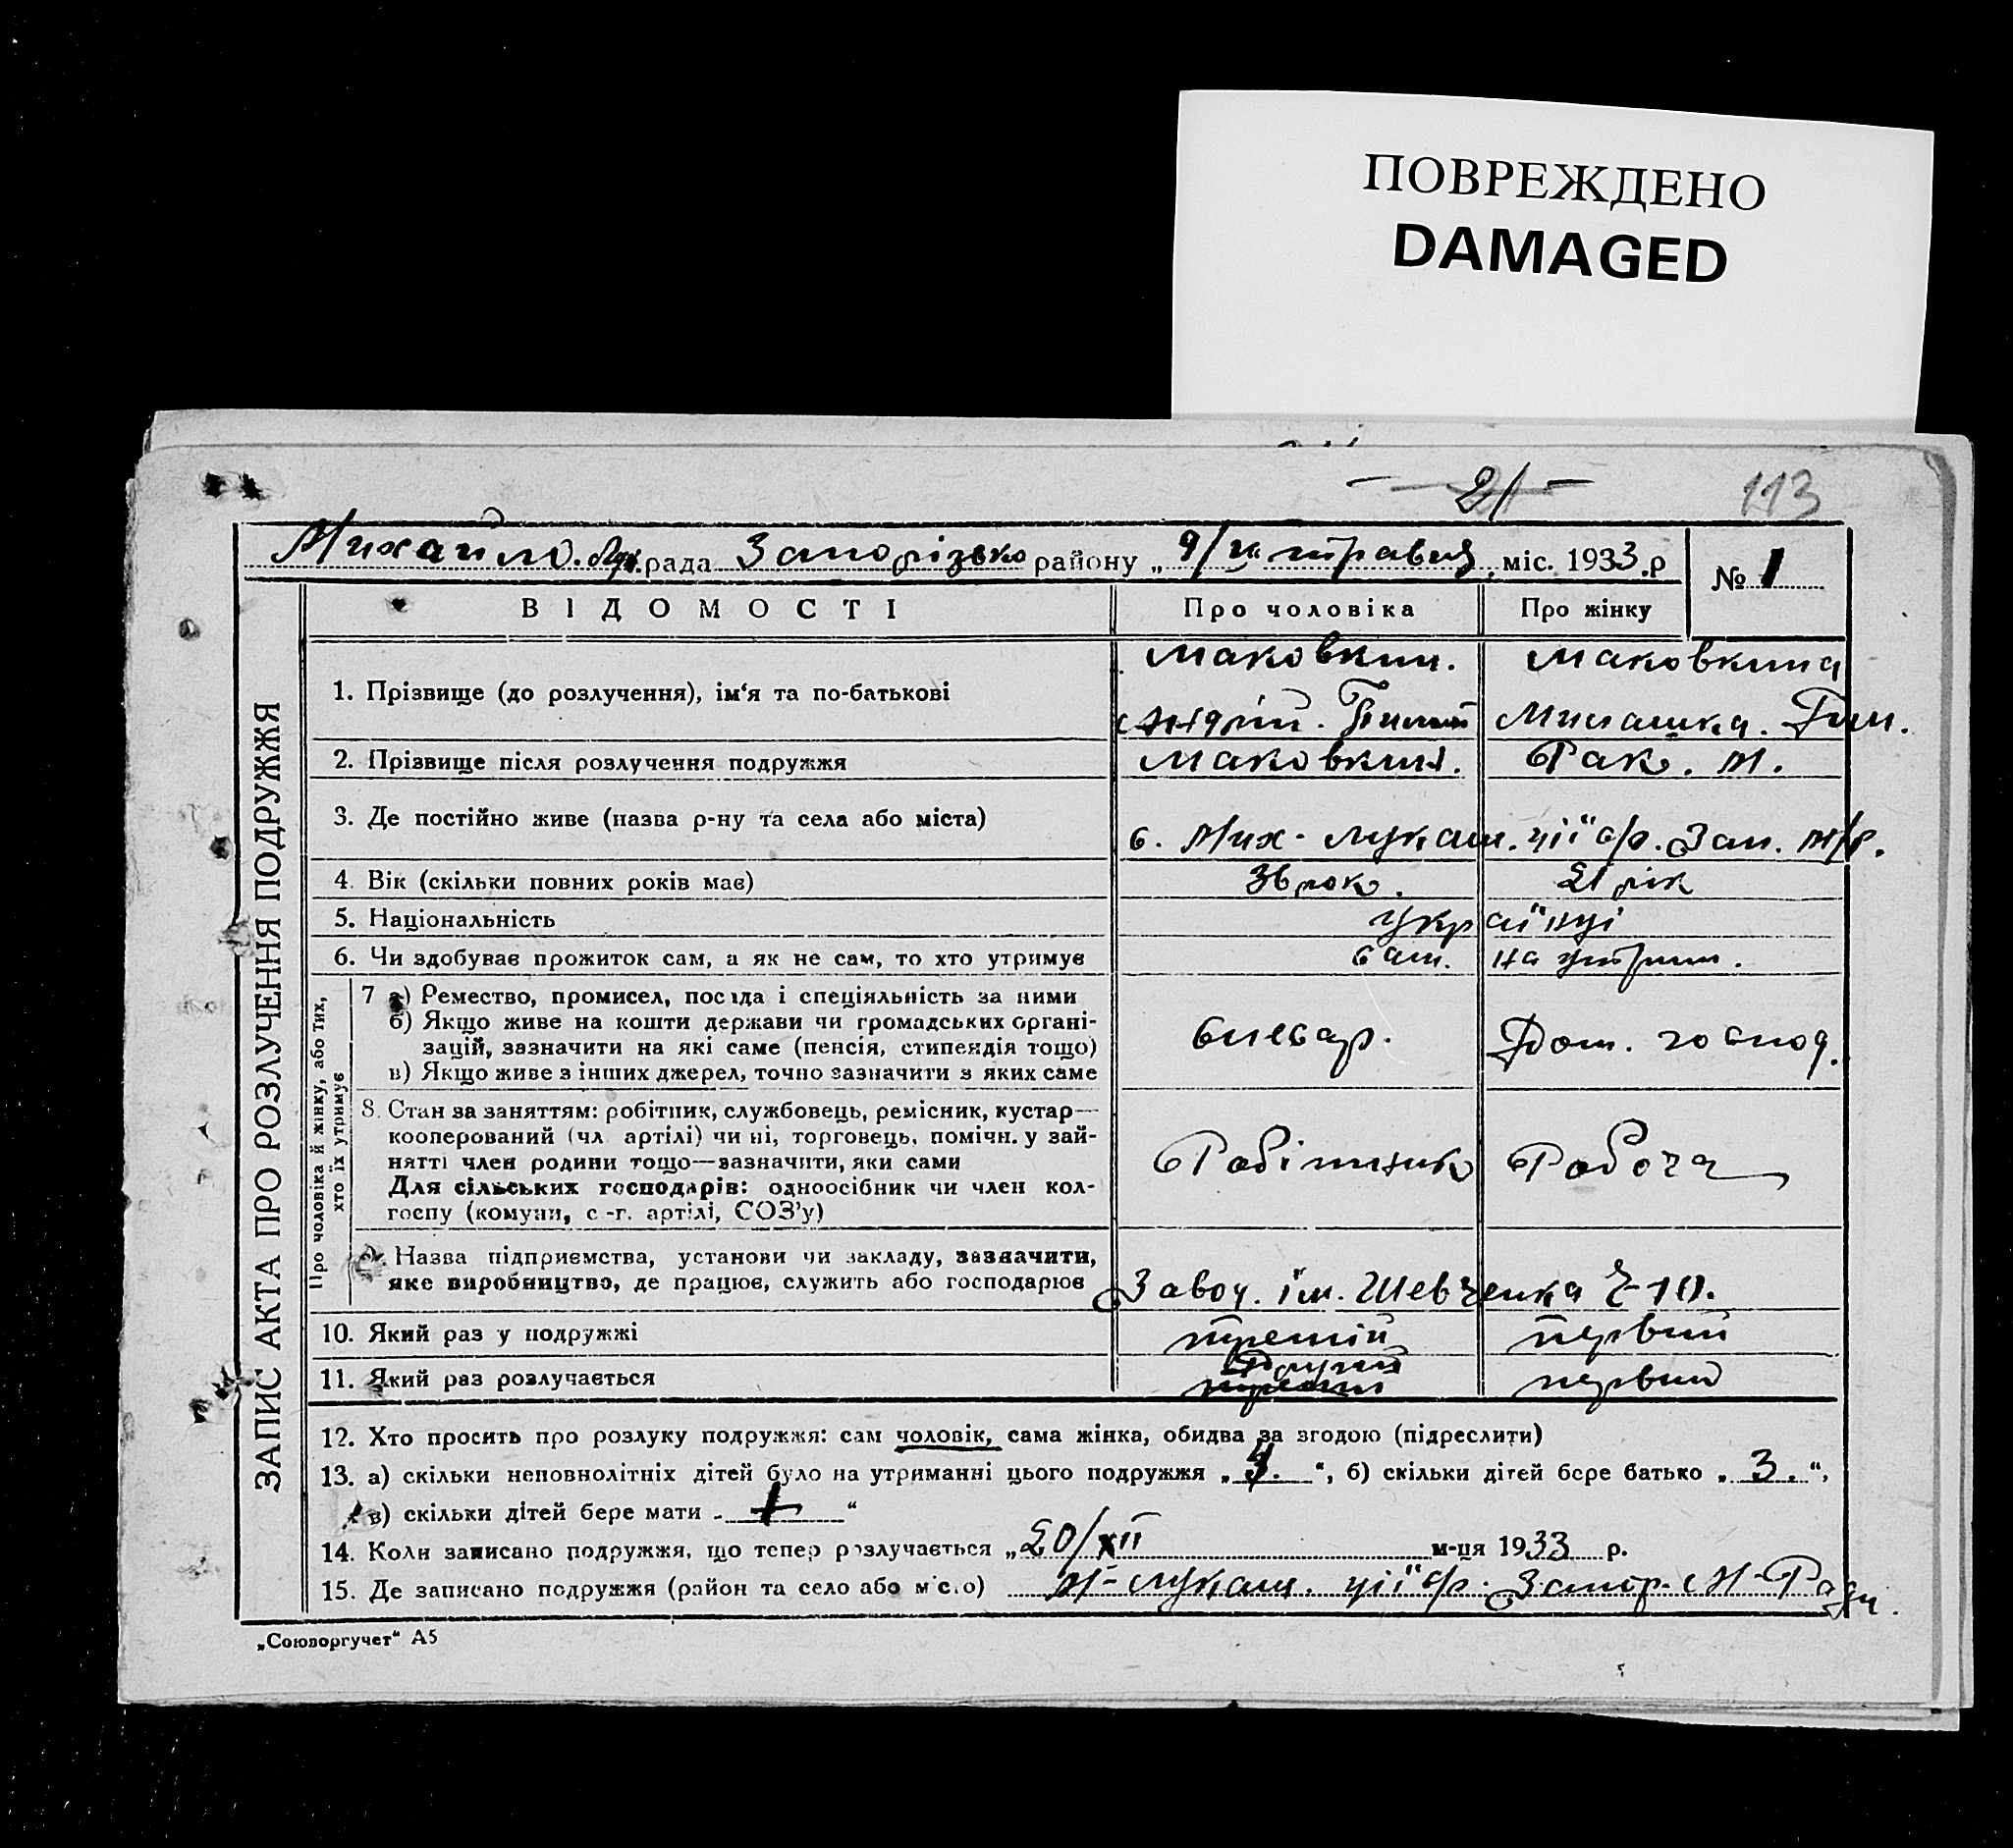 ПОВРЕЖДЕНО
DAMAGED
21
113
Михайло. Лук. рада Запорізько району „ 9/ травня міс. 1933 р № 1
ВІДОМОСТІ Про чоловіка Про жінку
ЗАПИС АКТА ПРО РОЗЛУЧЕННЯ ПОДРУЖЖЯ
Маковкин. Маковкина
1. Прізвище (до розлучення), ім'я та по-батькові
Андрій. Минашка.
2. Прізвище після розлучення подружжя Маковкин. Рак. М.
3. Де постійно живе (назва р-ну та села або міста)
с. Мих-Лукаш. ції с/р. Зап. м/р.
4. Вік (скільки повних років має) 36 рок. 21 рік
5. Національність українці
6. Чи здобуває прожиток сам, а як не сам, то хто утримує сам. на утрим.
Про чоловіка й жінку, або тих, хто їх утримує
7 а) Ремество, промисел, посада і спеціяльність за ними
б) Якщо живе на кошти держави чи громадських органі-
зацій, зазначити на які саме (пенсія, стипендія тощо)
слесар. Дом. господ.
в) Якщо живе з інших джерел, точно зазначити з яких саме
8. Стан за заняттям: робітник, службовець, ремісник, кустар—
кооперований (чл. артілі) чи ні, торговець, помічн. у зай-
нятті член родини тощо—зазначити, яки сами
Робітник Робоча
Для сільських господарів: одноосібник чи член кол-
госпу (комуни, с.-г. артілі, СОЗ'у)
9. Назва підприємства, установи чи закладу, зазначити,
яке виробництво, де працює, служить або господарює Завод. ім. Шевченка
10. Який раз у подружжі третій первий
11. Який раз розлучається Другий третій первий
12. Хто просить про розлуку подружжя: сам чоловік, сама жінка, обидва за згодою (підреслити)
13. а) скільки неповнолітніх дітей було на утриманні цього подружжя „ “, б) скільки дітей бере батько „ 3. “,
в) скільки дітей бере мати „ “
14. Коли записано подружжя, що тепер розлучається „20/XII м-ця 1933 р.
15. Де записано подружжя (район та село або місто) М-Лукаш. ції с/р. Запор. М-Ради.
„Союзоргучет“ А5